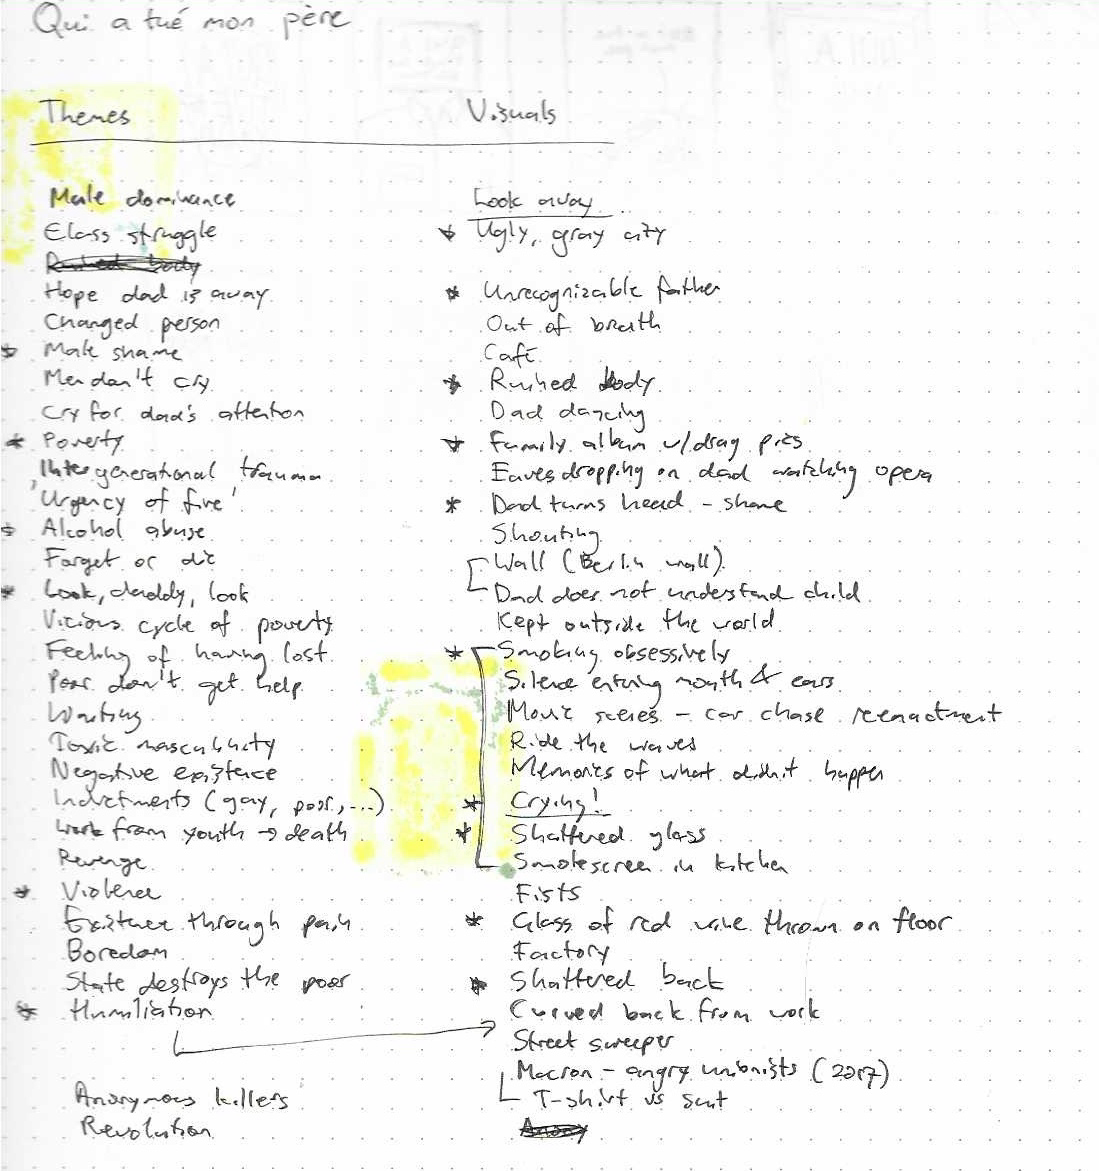 Qui a tué mon père
Themes
Male dominance
Class struggle
Ruined body
Hope dad is away
Changed person
* Male shame
Men don't cry
Cry for dad's attention
* Poverty
Intergenerational trauma
'Urgency of fire'
* Alcohol abuse
Forget or die
* Look, daddy, look
Vicious cycle of poverty
Feeling of having lost
Poor don't get help
Waiting
Toxic masculinity
Negative existence
Indictments (gay, poor, ...)
Work from youth → death
Revenge
* Violence
Existence through pain
Boredom
State destroys the poor
* Humiliation
Anonymous killers
Revolution
Visuals
Look away
* Ugly, gray city
* Unrecognizable father
Out of breath
Café
* Ruined body
Dad dancing
* Family album w/drag pics
Eavesdropping on dad watching opera
* Dad turns head - shame
Shouting
Wall (Berlin wall)
Dad does not understand child
Kept outside the world
* Smoking obsessively
Silence entering mouth & ears
Movie scenes - car chase reenactment
Ride the waves
Memories of what didn't happen
* Crying!
* Shattered glass
Smokescreen in kitchen
Fists
* Glass of red wine thrown on floor
Factory
* Shattered back
Curved back from work
Street sweeper
Macron - angry unionists (2017)
T-shirt vs suit